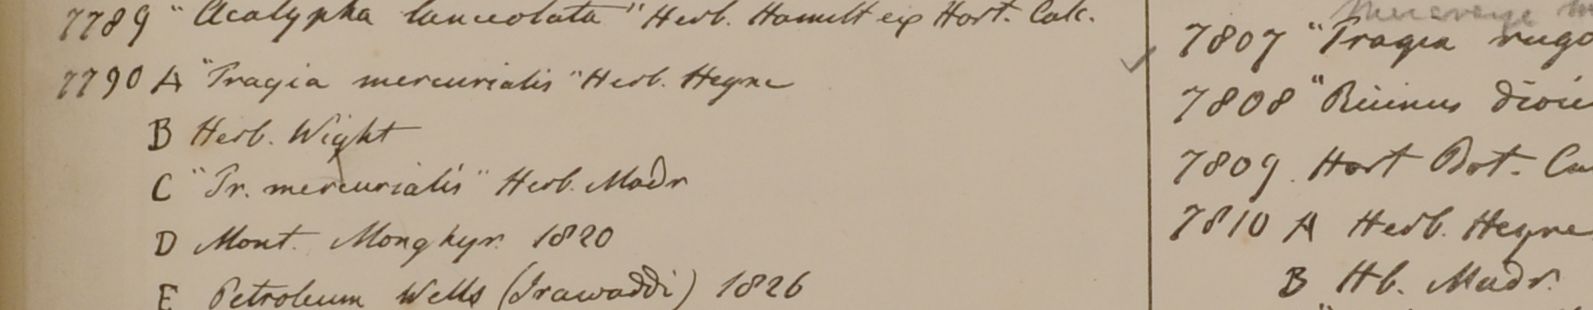 7789 "Acalypha lanceolata" Herb. Hamilt ex Hort. Calc.
7790 A "Tragia mercurialis" Herb. Heyne
B Herb. Wight
C "Tr. mercurialis" Herb. Madr
D Mont. Monghyr. 1820
E Petroleum Wells (Irawaddi) 1826
7807 "Tragia
7808 "Ricinus dioic
7809. Hort Bot. Ca
7810 A Herb. Heyne
B Hb. Madr.